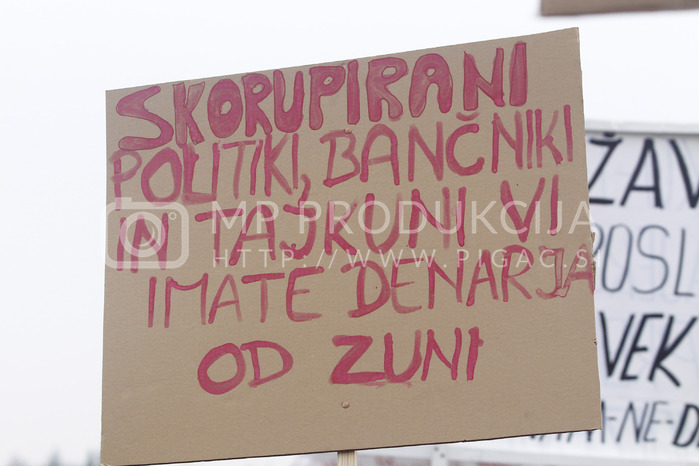 SKORUPIRANI
POLITIKI, BANČNIKI
IN TAJKUNI VI
IMATE DENARJA
OD ZUNI
MP PRODUKCIJA
HTTP://WWW.PIGAC.S
ŽAV
POSL
VEK
-NE-D